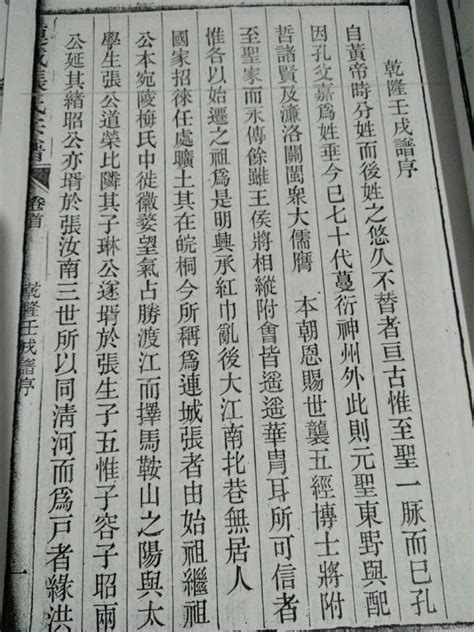 乾隆壬戌譜序
自黃帝時分姓而後姓之悠久不替者亘古惟至聖一脈而已孔
因孔父嘉爲姓垂今已七十代蔓衍神州外此則元聖東野與配
哲諸賢及濂洛關閩衆大儒膺 本朝恩賜世襲五經博士將附
至聖家而永傳餘雖王侯將相縱附會皆遥遥華胄耳所可信者
惟各以始遷之祖爲是明興承紅巾亂後大江南北巷無居人
國家招徠任處曠土其在皖桐今所稱爲連城張者由始祖繼祖
公本宛陵梅氏中徙徽婺望氣占勝渡江而擇馬鞍山之陽與太
學生張公道榮比隣其子琳公遂壻於張生子五惟子容子昭兩
公延其緒昭公亦壻於張汝南三世所以同清河而爲戶者緣洪
張氏宗譜
卷首
乾隆壬戌譜序
一